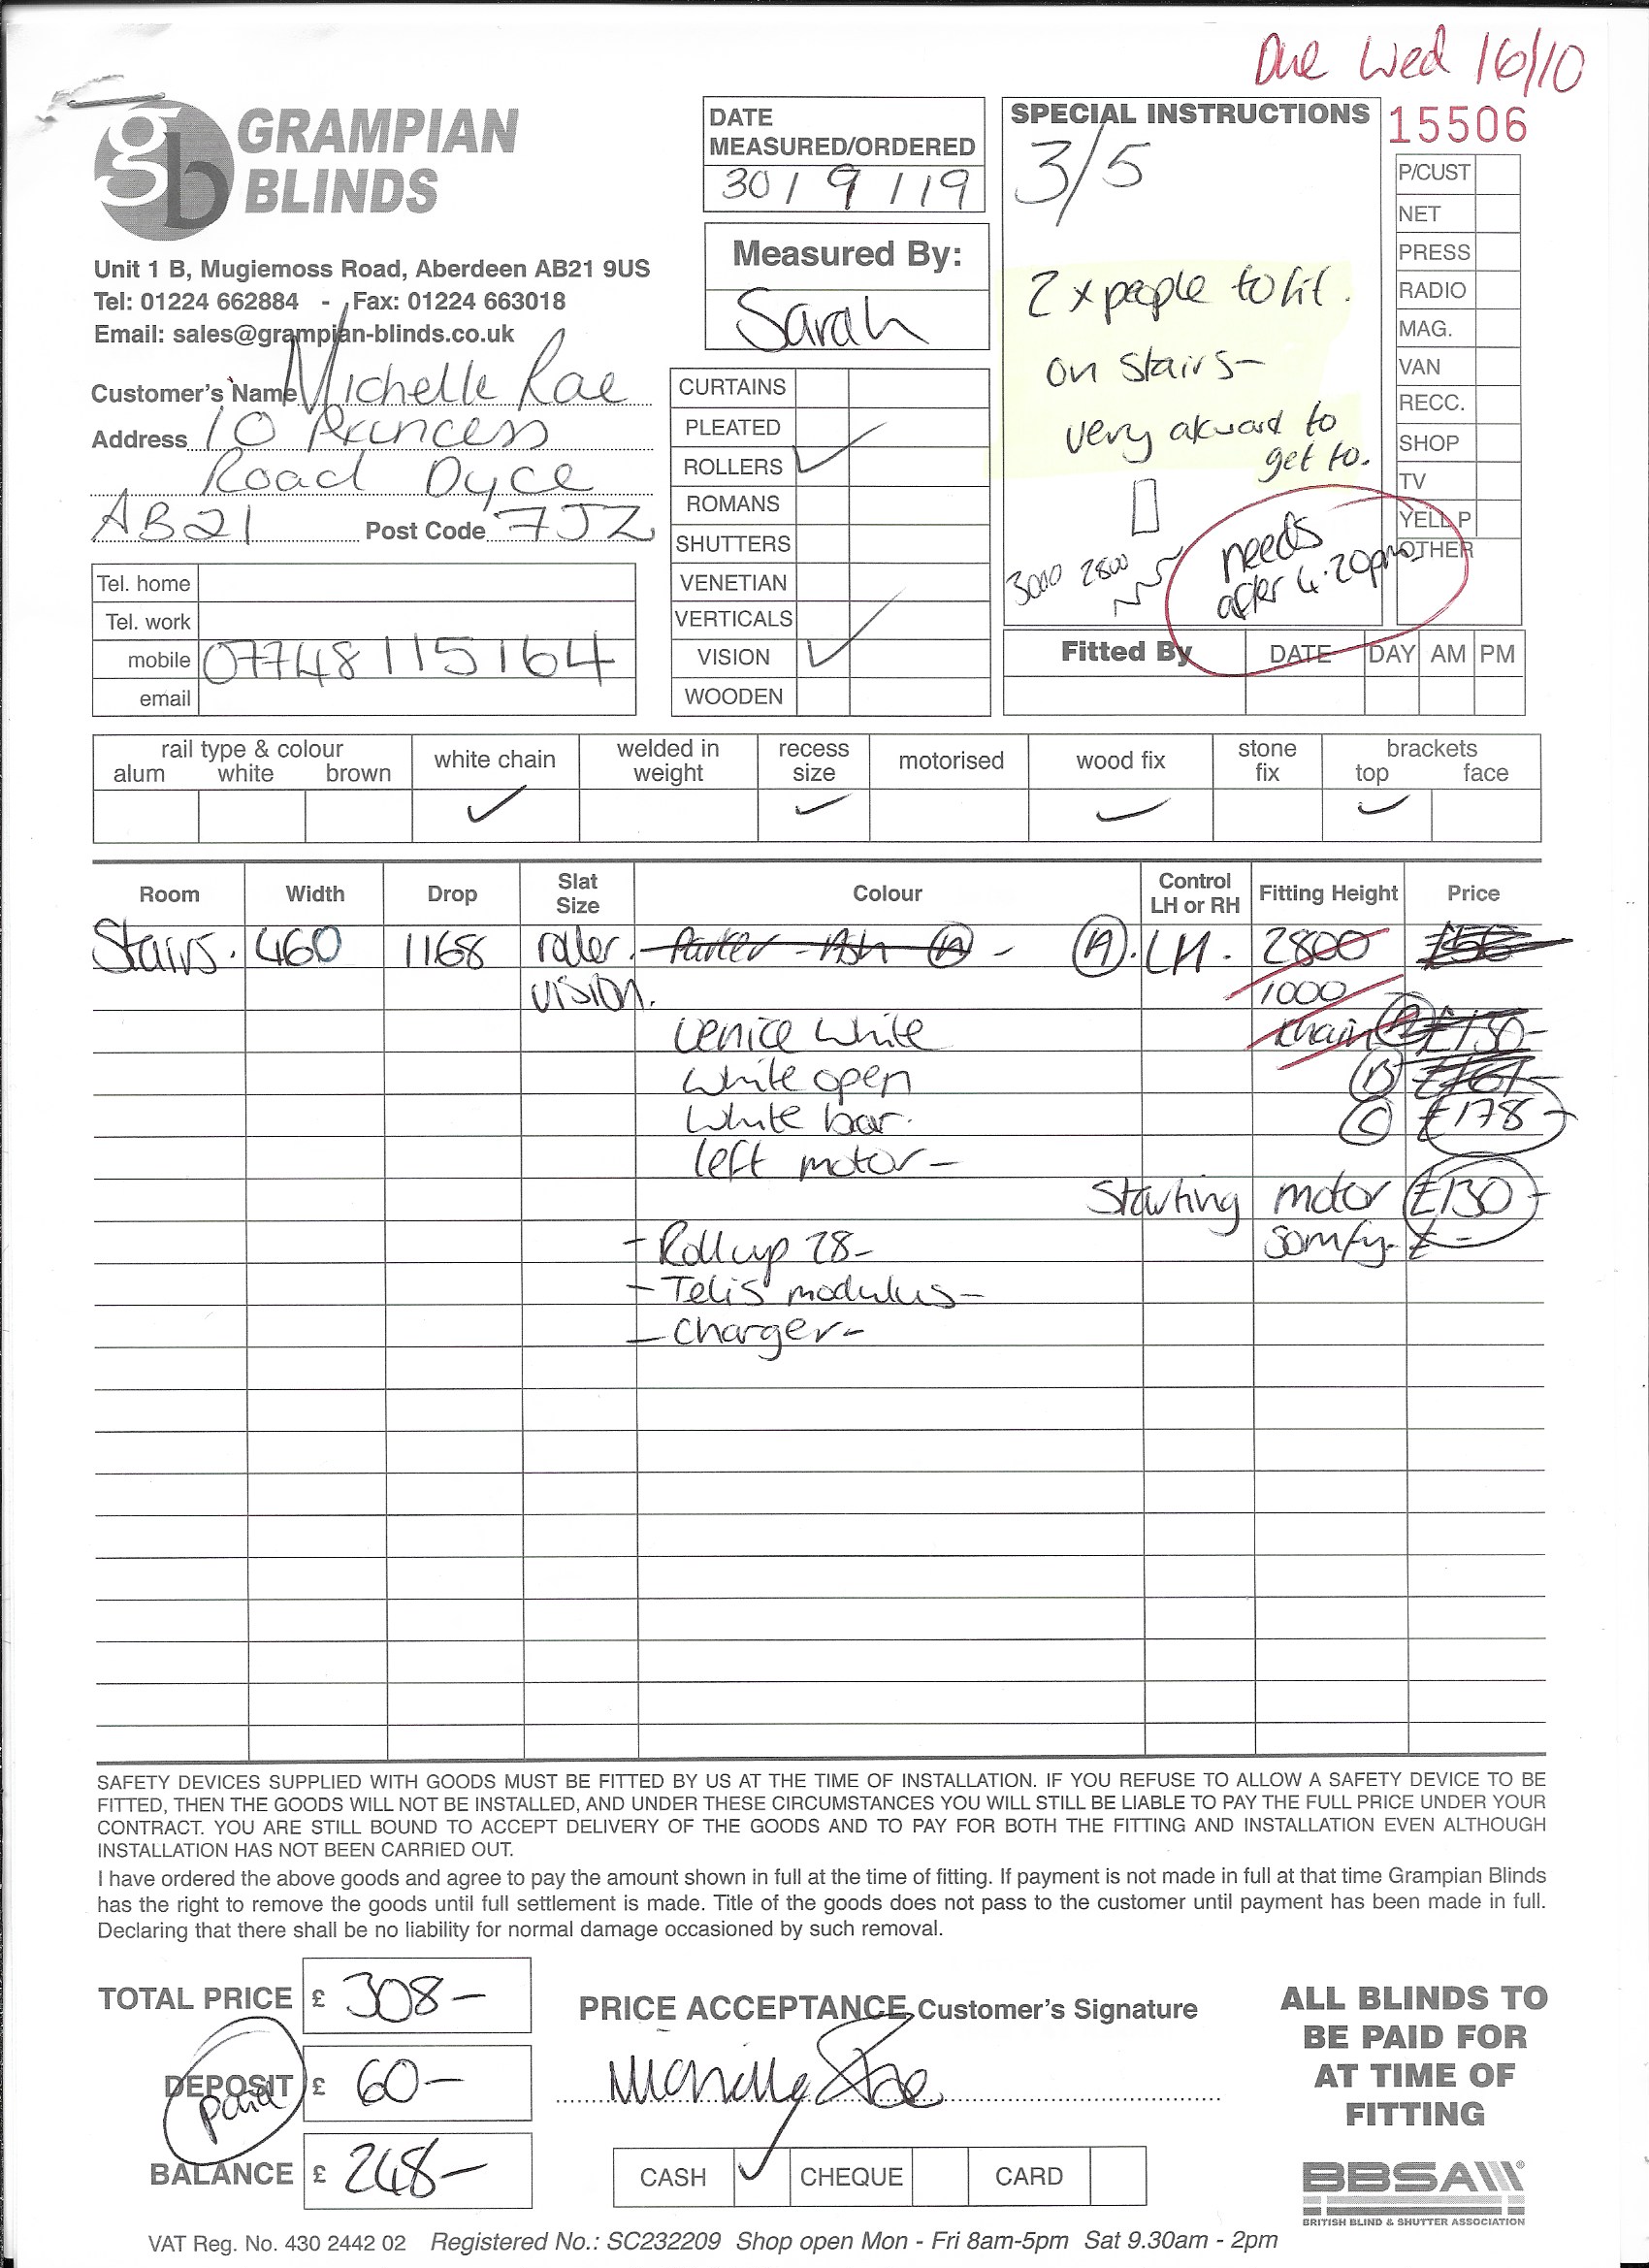 Due Wed 16/10
GRAMPIAN
BLINDS
Unit 1 B, Mugiemoss Road, Aberdeen AB21 9US
Tel: 01224 662884 - Fax: 01224 663018
Email: sales@grampian-blinds.co.uk
Customer's Name Michelle Rae
Address 10 Princess
Road Dyce
AB21 Post Code 7JZ
Tel. home
Tel. work
mobile 07748 115164
email
DATE
MEASURED/ORDERED
30 / 9 / 19
Measured By:
Sarah
CURTAINS
PLEATED
ROLLERS ✓
ROMANS
SHUTTERS
VENETIAN
VERTICALS
VISION ✓
WOODEN
SPECIAL INSTRUCTIONS
3/5
2 x people to fit.
on stairs -
very akward to
get to.
3000 2800
needs
after 4.20pm
15506
P/CUST
NET
PRESS
RADIO
MAG.
VAN
RECC.
SHOP
TV
YELL P
OTHER
Fitted By DATE DAY AM PM
rail type & colour white chain welded in weight recess size motorised wood fix stone fix brackets
alum white brown top face
✓ ✓ ✓ ✓
Room Width Drop Slat Size Colour Control LH or RH Fitting Height Price
Stairs. 460 1168 roller. Parker - Ash (A) - (A). LH. 2800
vision. 1000
Venice white chain (A) £130-
white open (B) £161-
white bar. (C) £178-
left motor -
Starting motor £130-
- Rollup 28- somfy. £ -
- Telis modulus -
- Charger -
SAFETY DEVICES SUPPLIED WITH GOODS MUST BE FITTED BY US AT THE TIME OF INSTALLATION. IF YOU REFUSE TO ALLOW A SAFETY DEVICE TO BE
FITTED, THEN THE GOODS WILL NOT BE INSTALLED, AND UNDER THESE CIRCUMSTANCES YOU WILL STILL BE LIABLE TO PAY THE FULL PRICE UNDER YOUR
CONTRACT. YOU ARE STILL BOUND TO ACCEPT DELIVERY OF THE GOODS AND TO PAY FOR BOTH THE FITTING AND INSTALLATION EVEN ALTHOUGH
INSTALLATION HAS NOT BEEN CARRIED OUT.
I have ordered the above goods and agree to pay the amount shown in full at the time of fitting. If payment is not made in full at that time Grampian Blinds
has the right to remove the goods until full settlement is made. Title of the goods does not pass to the customer until payment has been made in full.
Declaring that there shall be no liability for normal damage occasioned by such removal.
TOTAL PRICE £ 308-
DEPOSIT £ 60-
paid
BALANCE £ 248-
PRICE ACCEPTANCE Customer's Signature
CASH ✓ CHEQUE CARD
ALL BLINDS TO
BE PAID FOR
AT TIME OF
FITTING
BBSA
BRITISH BLIND & SHUTTER ASSOCIATION
VAT Reg. No. 430 2442 02 Registered No.: SC232209 Shop open Mon - Fri 8am-5pm Sat 9.30am - 2pm